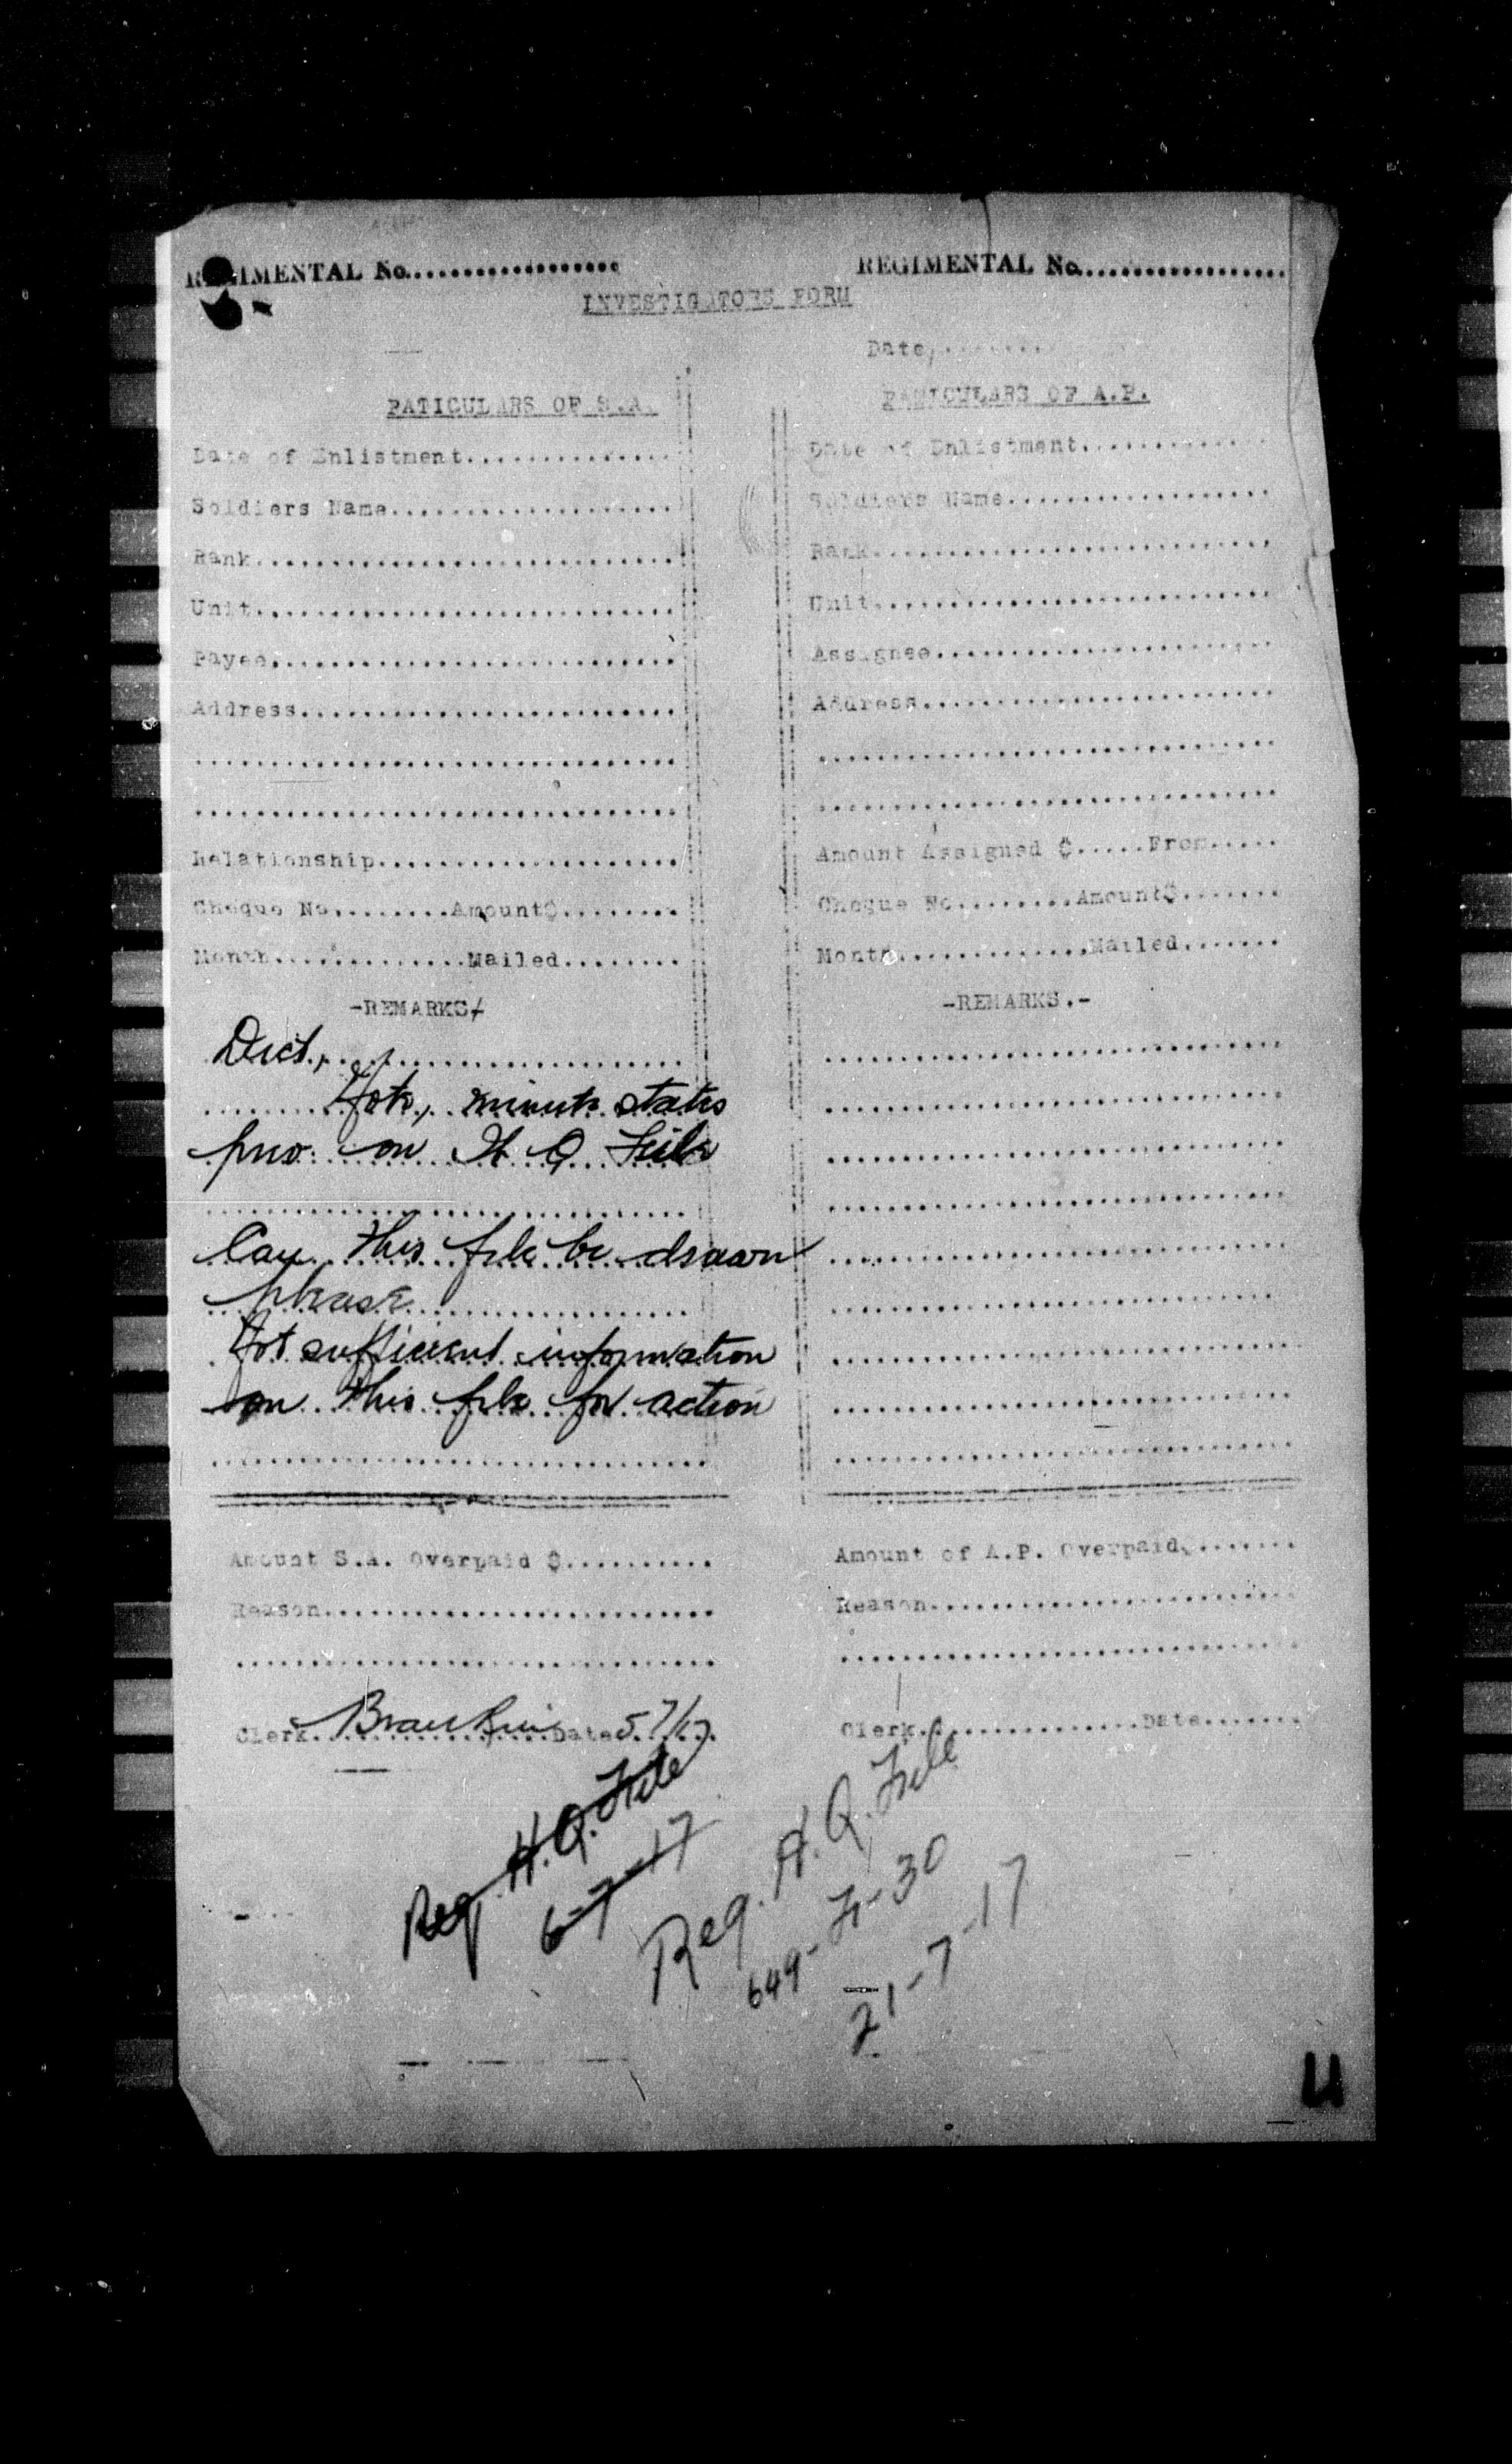 REGIMENTAL No....................
REGIMENTAL No....................
INVESTIGATORS FORM
Date,.........
PATICULARS OF S.A.
Date of Enlistment...............
Soldiers Name....................
Rank.............................
Unit.............................
Payee............................
Address..........................
.................................
.................................
Relationship.....................
Cheque No........Amount$........
Month.............Mailed........
-REMARKS/
Dict,
Note, minute states
prev. on H Q File
Can this file be drawn
please
Not sufficient information
on this file for action
.................................
Amount S.A. Overpaid $..........
Reason...........................
.................................
Clerk Date 5.7/17.
PATICULARS OF A.P.
Date of Enlistment.............
Soldiers Name..................
Rank...........................
Unit...........................
Assignee.......................
Address........................
...............................
...............................
Amount Assigned $.....From.....
Cheque No........Amount$.......
Month.............Mailed.......
-REMARKS.-
...............................
...............................
...............................
...............................
...............................
...............................
...............................
...............................
...............................
Amount of A.P. Overpaid$.......
Reason.........................
...............................
Clerk................Date.......
Req. H.Q. File
6-7-17
Req. H.Q. File
649- -30
21-7-17